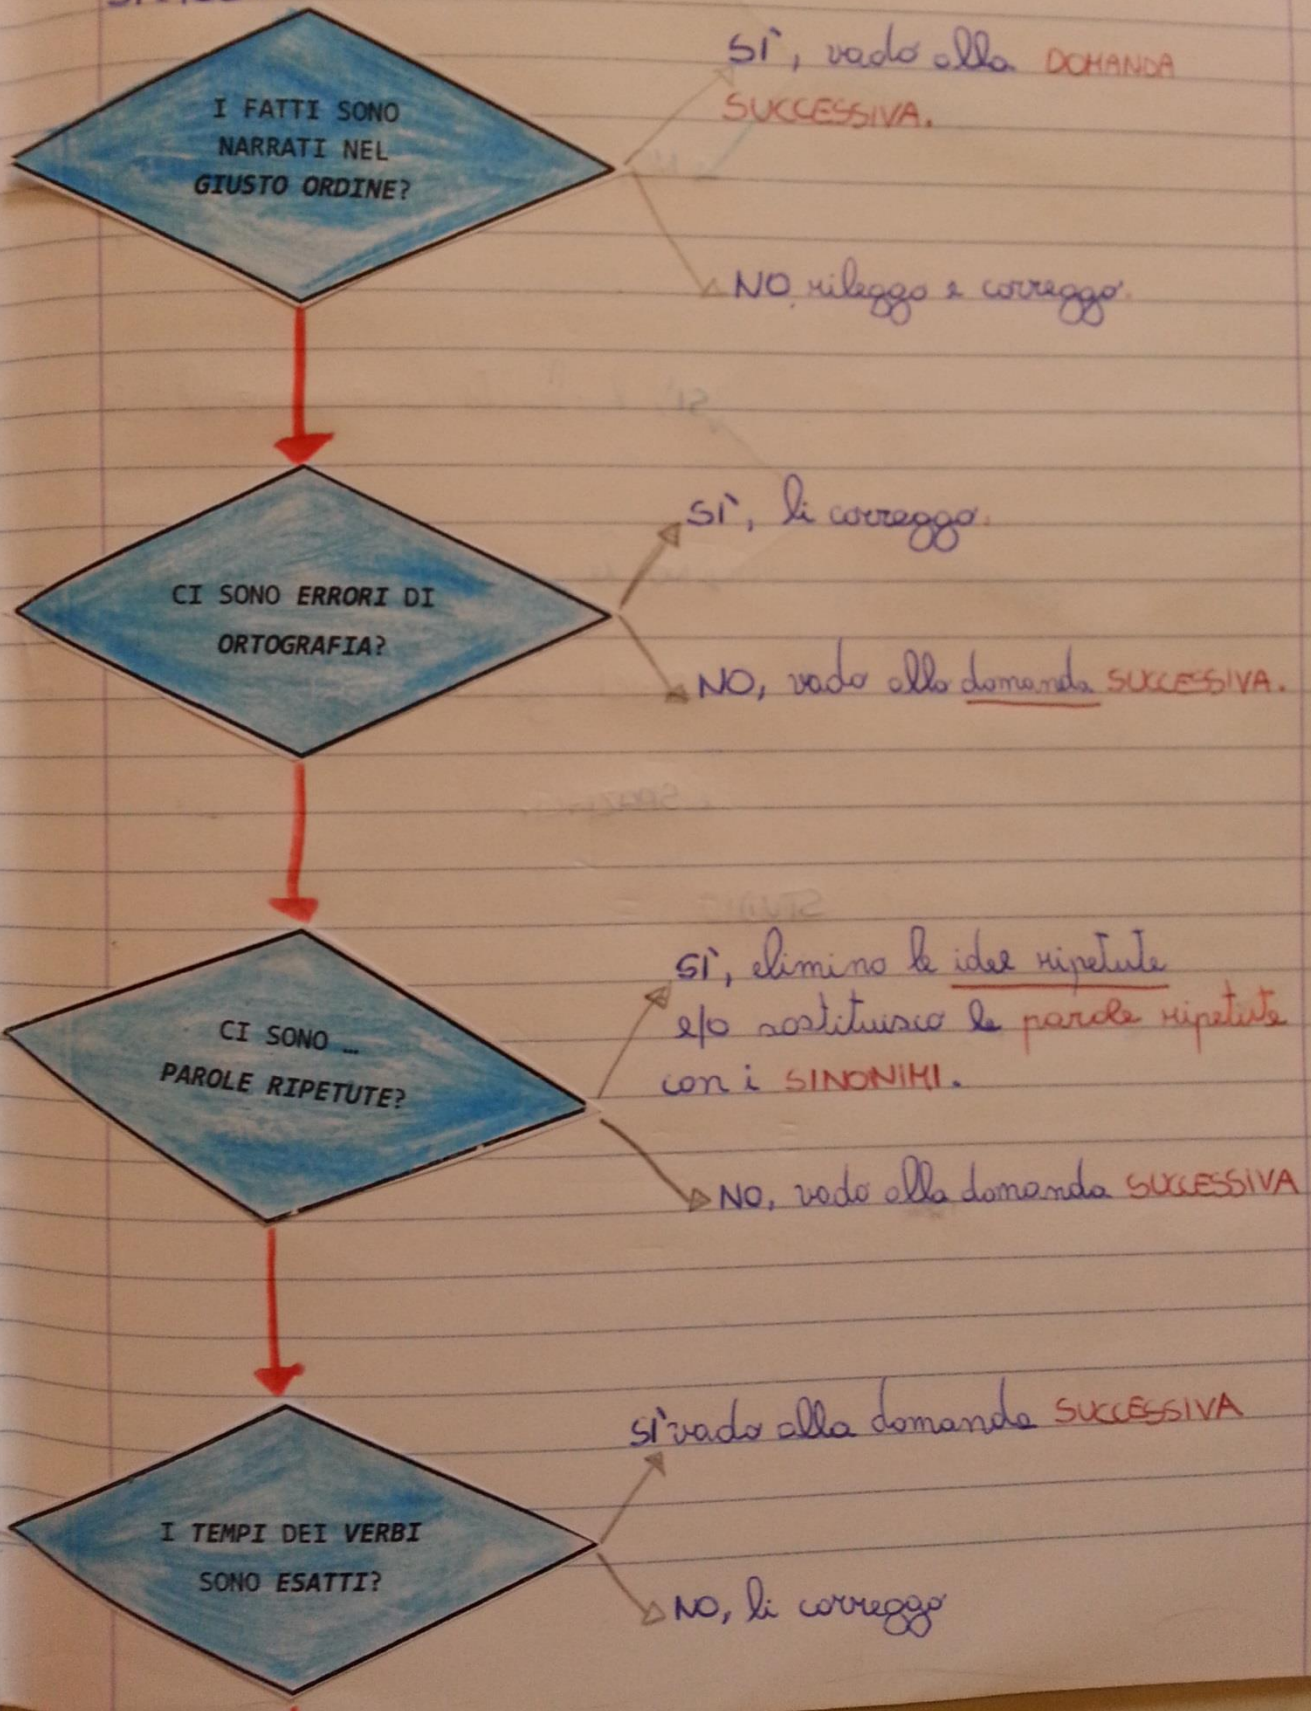 I FATTI SONO
NARRATI NEL
GIUSTO ORDINE?
SÌ, vado alla DOMANDA
SUCCESSIVA.
NO, rileggo e correggo.
CI SONO ERRORI DI
ORTOGRAFIA?
SÌ, li correggo.
NO, vado alla domanda SUCCESSIVA.
CI SONO …
PAROLE RIPETUTE?
SÌ, elimino le idee ripetute
e/o sostituisco le parole ripetute
con i SINONIMI.
NO, vado alla domanda SUCCESSIVA
I TEMPI DEI VERBI
SONO ESATTI?
SÌ vado alla domanda SUCCESSIVA
NO, li correggo